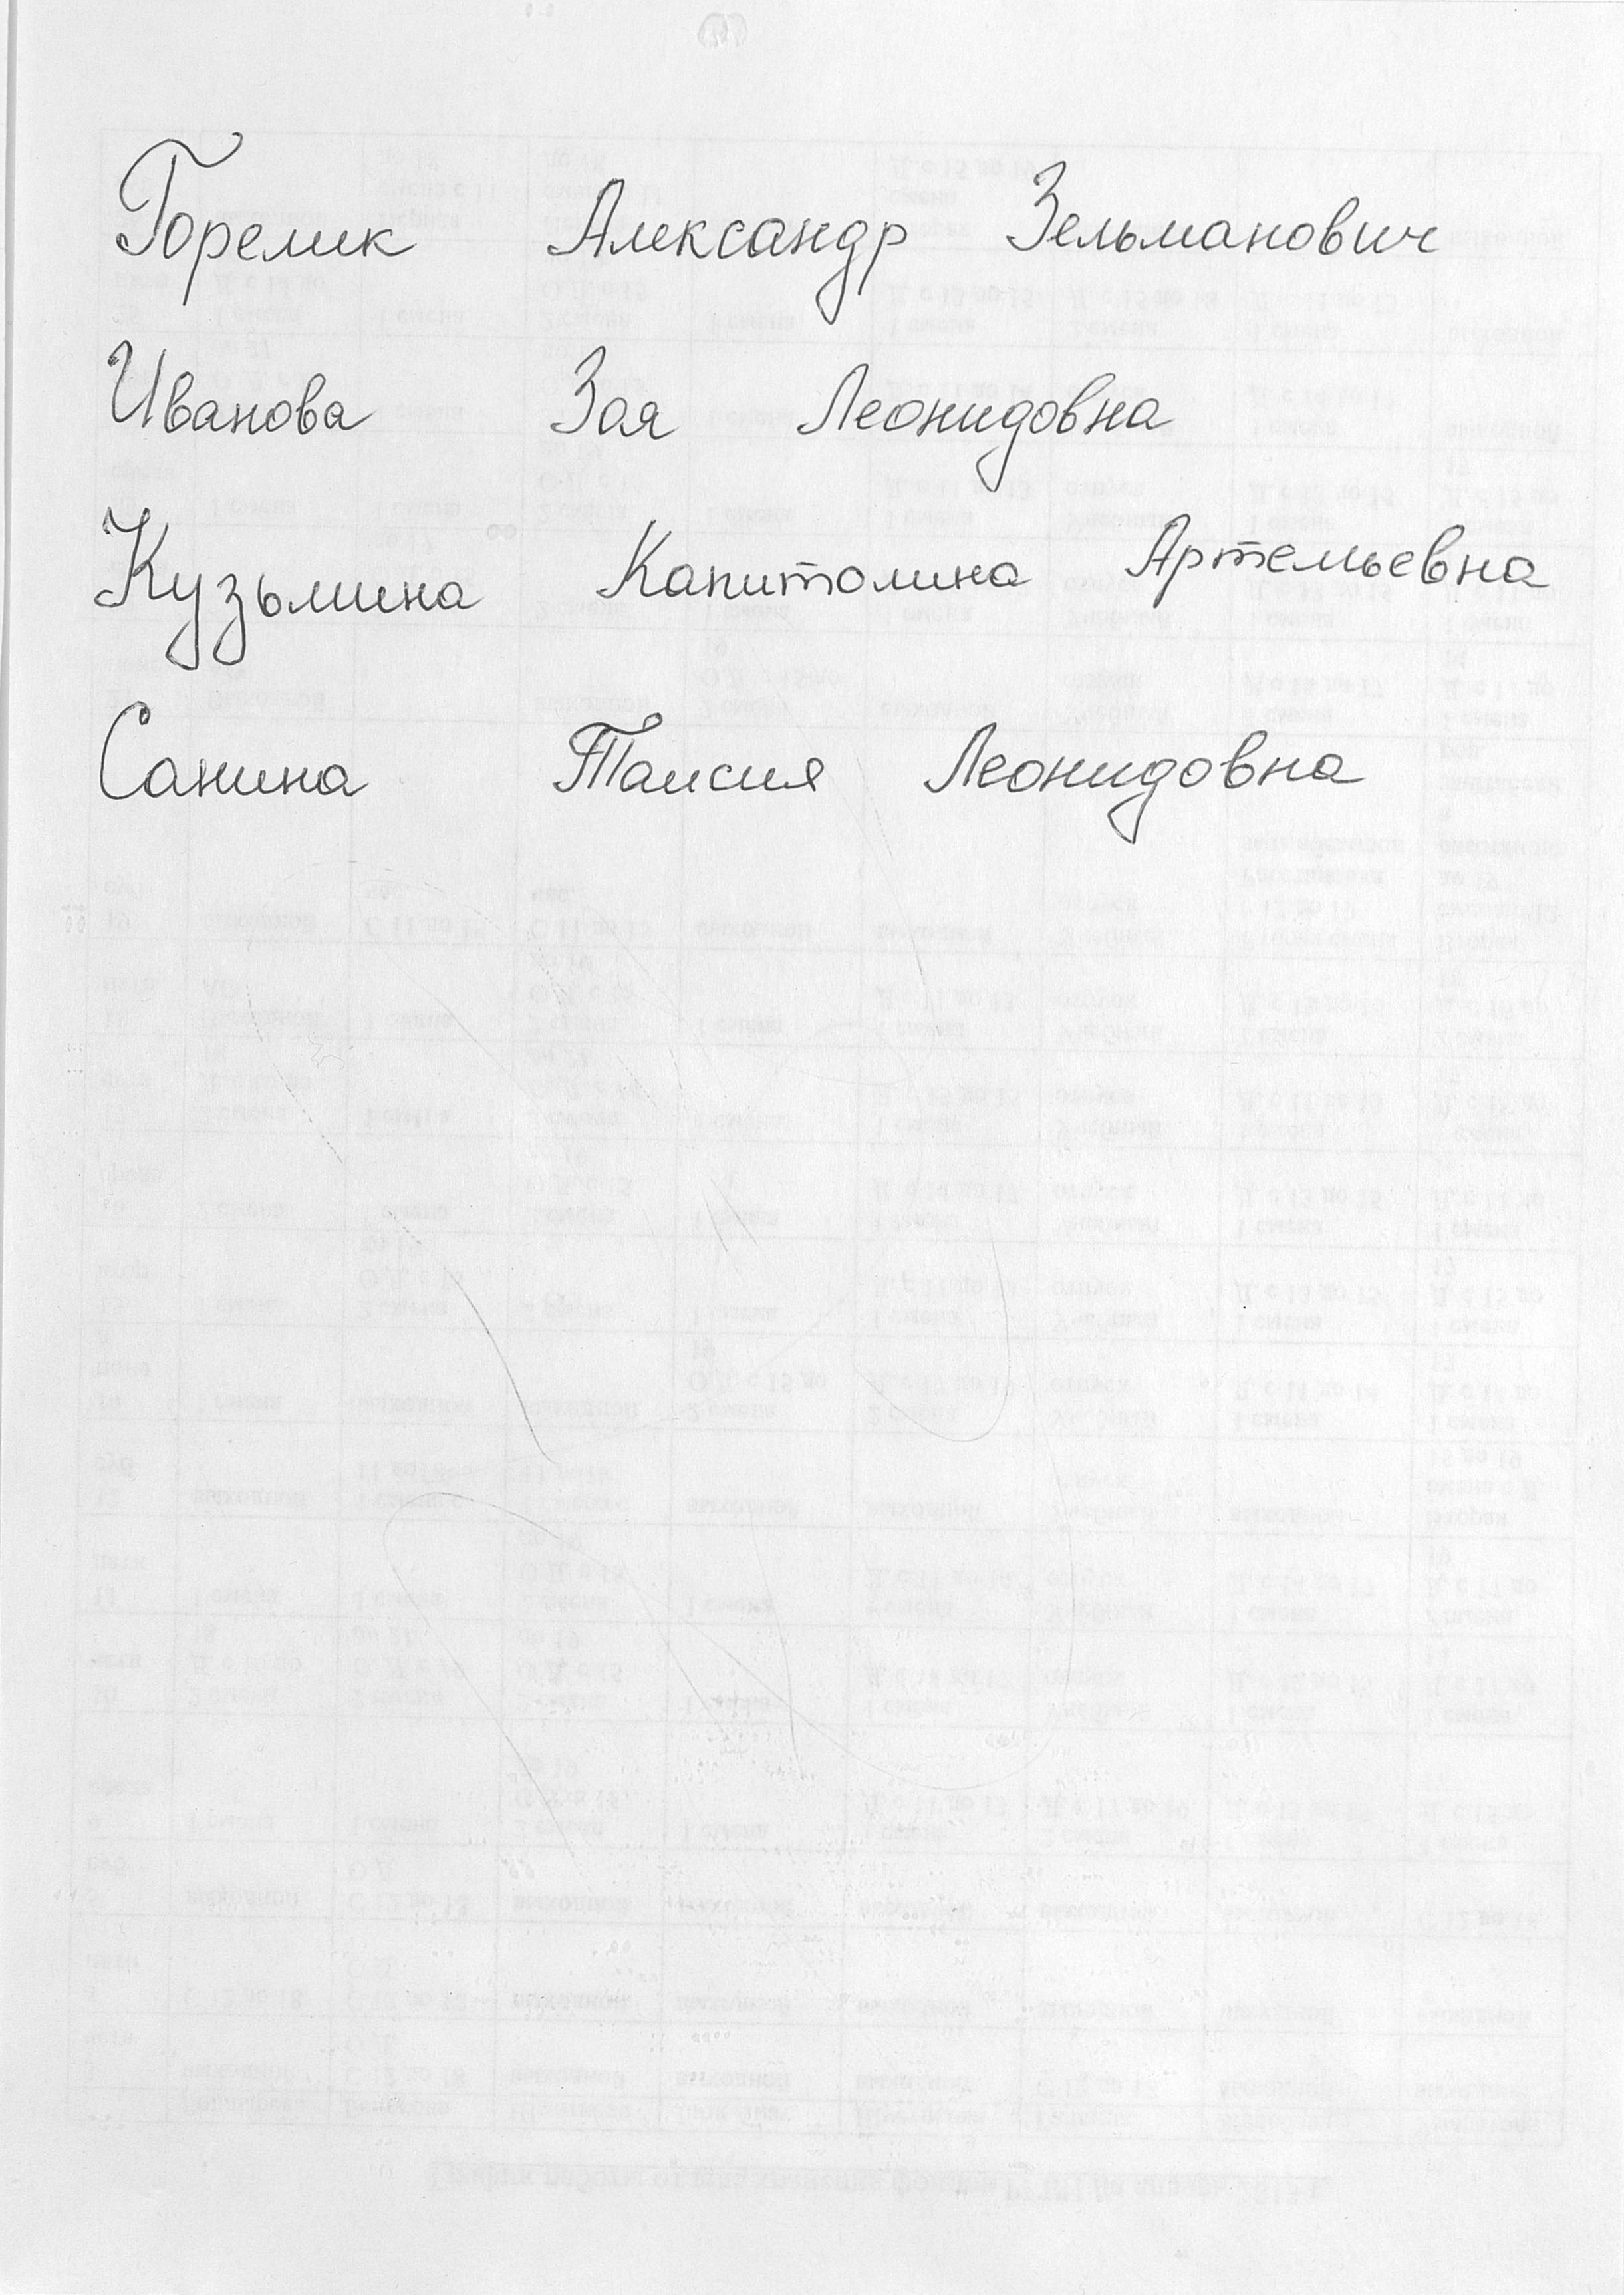 Горелик Александр Зельманович
Иванова Зоя Леонидовна
Кузьмина Капитолина Артемьевна
Санина Таисия Леонидовна